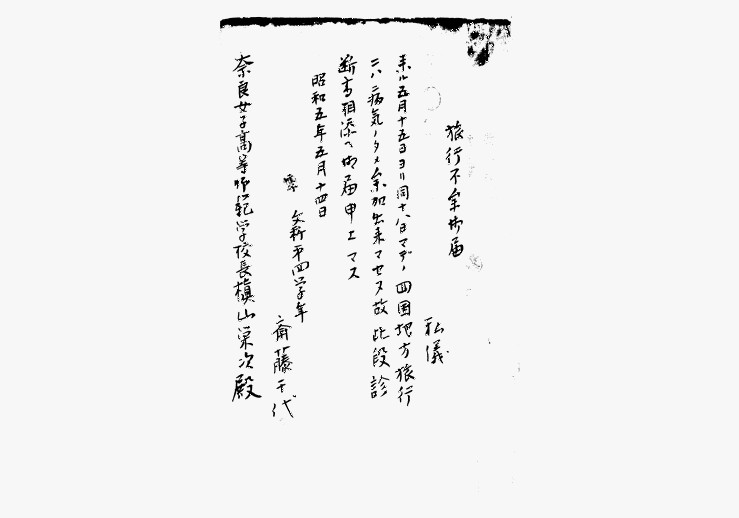 旅行不参加届
私儀
来ル五月十五日ヨリ同十八日マデノ四国地方旅行
ニハ病気ノタメ参加出来マセヌ故此段診
断書相添ヘ御届申上マス
昭和五年五月十四日
文科第四学年
斎藤千代
奈良女子高等師範学校長槇山栄次殿